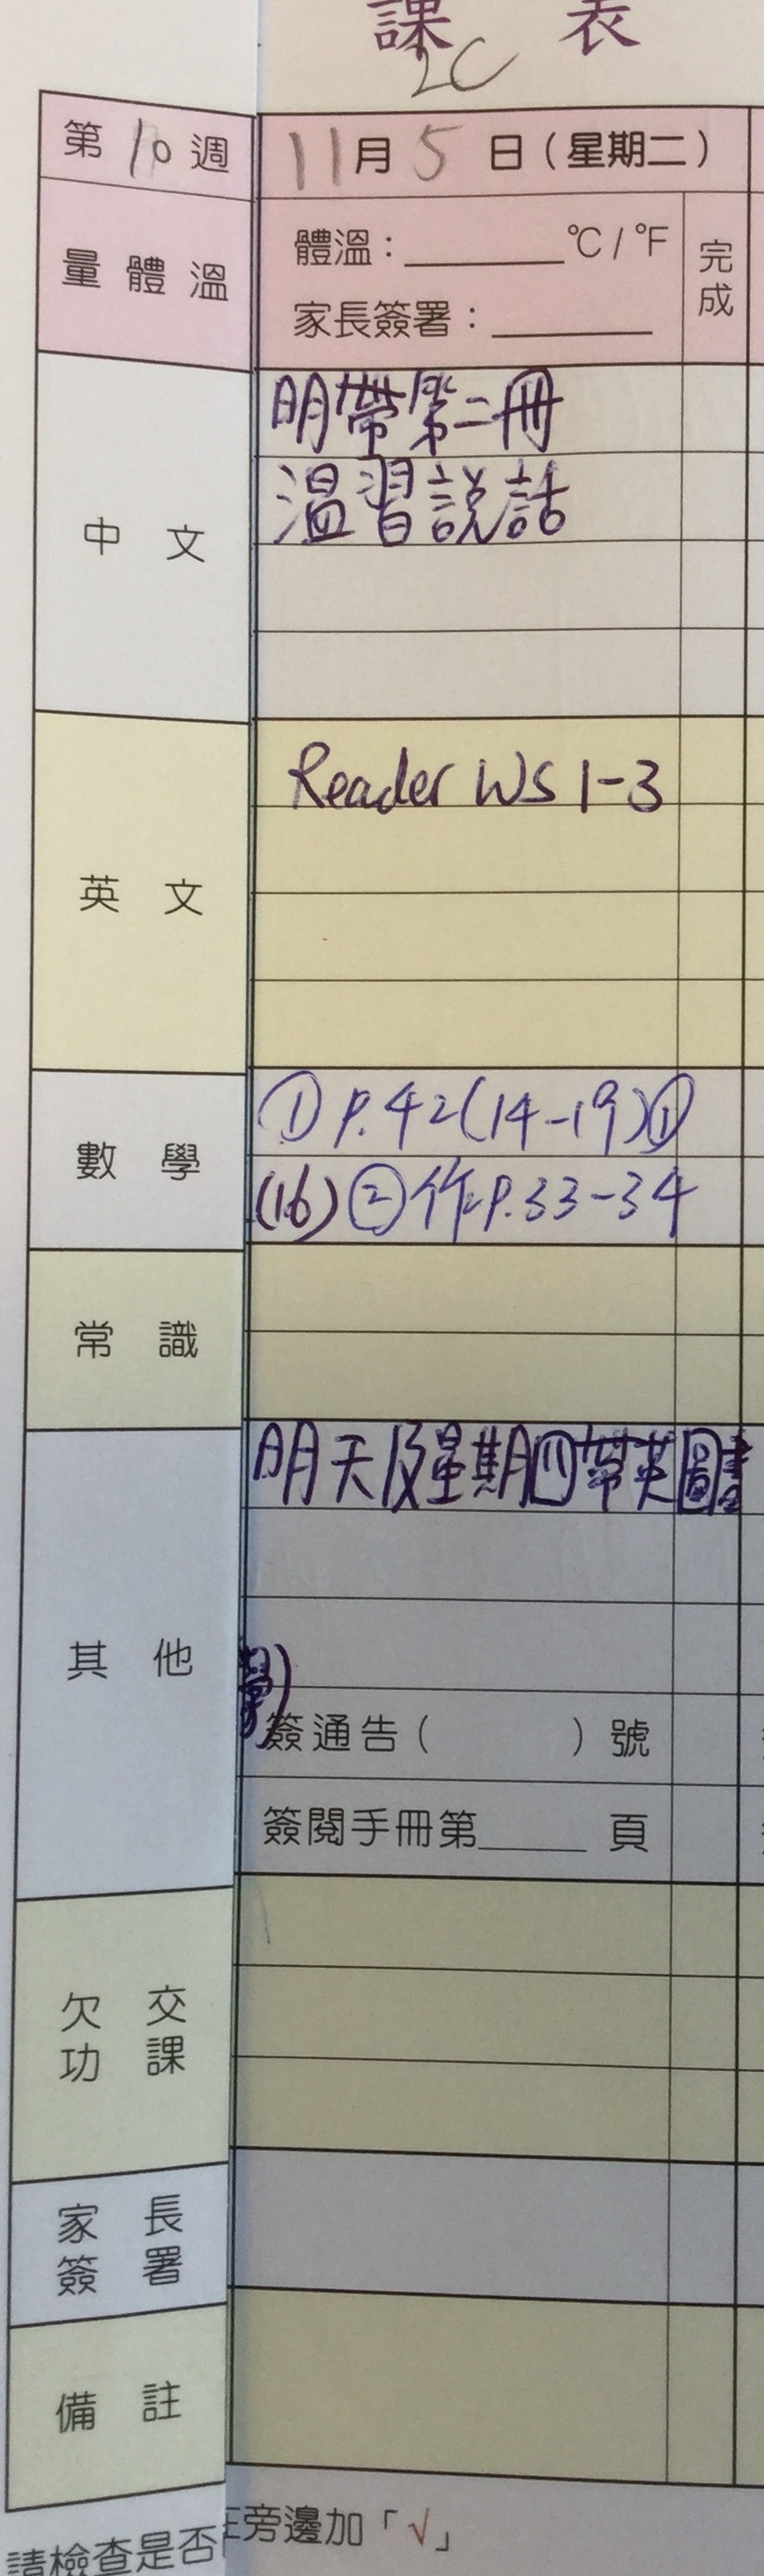 課 表
2C
第 10 週
11月 5 日(星期二)
量 體 溫
體溫:______°C / °F
完成
家長簽署:______
中 文
明帶第二冊
溫習說話
英 文
Reader WS 1-3
數 學
① P.42(14-19)①
(16) ② 作P.33-34
常 識
其 他
明天及星期四帶英圖書
簽通告( )號
簽閱手冊第____頁
欠 交
功 課
家 長
簽 署
備 註
請檢查是否
在旁邊加「√」